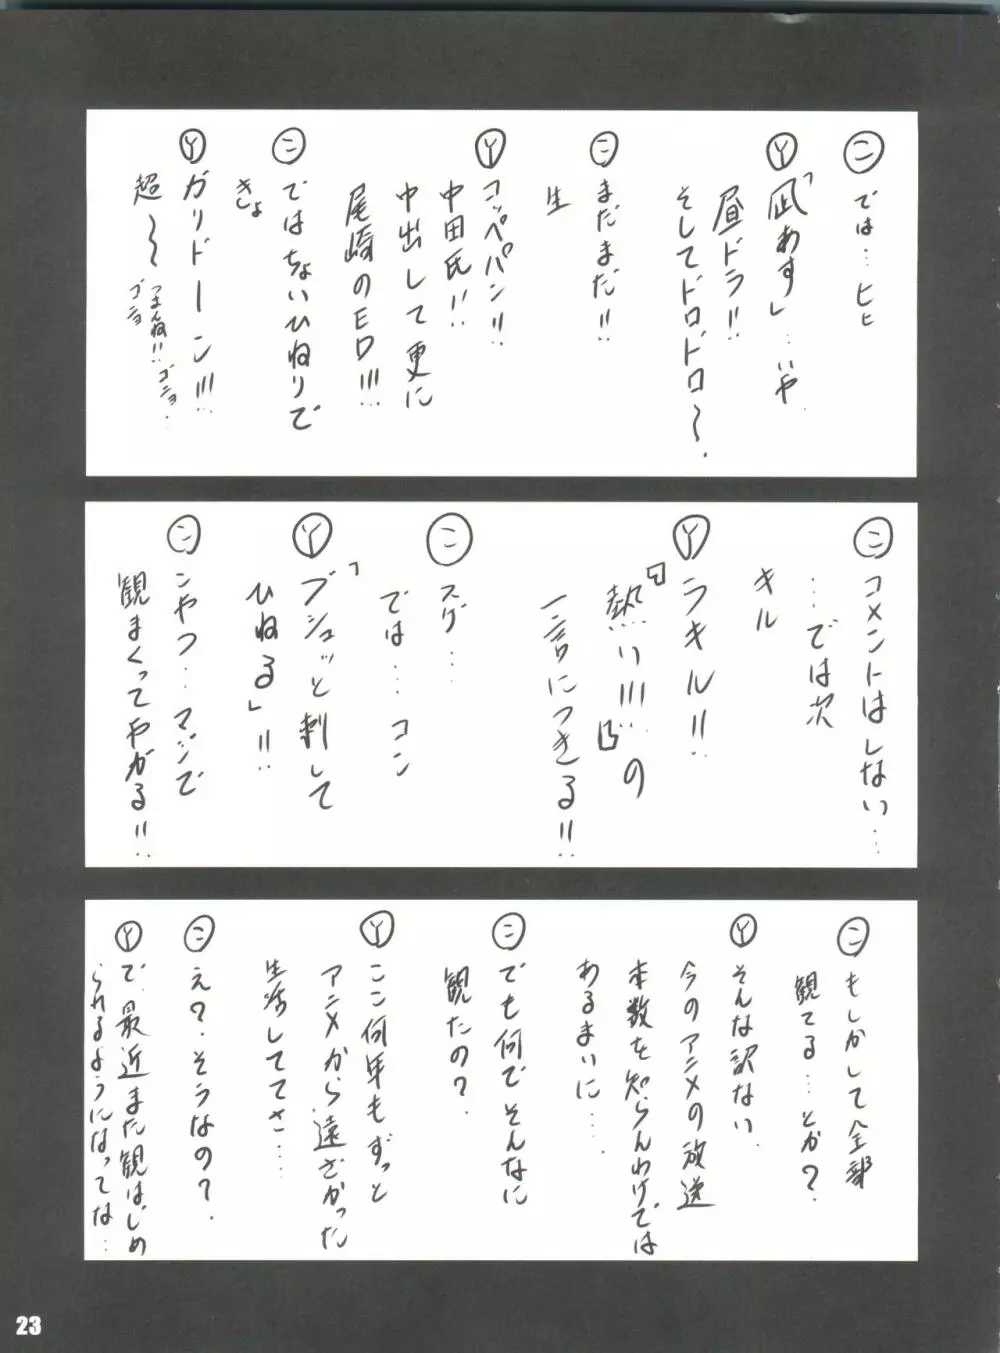 ㋙ では…ヒヒ
Ⓨ 「凪あす」…いや
昼ドラ!!
そしてドロドロ～.
㋙ まだまだ!!
生
Ⓨ コッペパン!!
中田氏!!
中出して更に
尾崎のED!!!
㋙ ではちょいひねりで
きしょ
Ⓨ ガリドーン!!!
超～～つまんね!! ゴニョ
ゴニョ
㋙ コメントはしない…
…では次
キル
Ⓨ ラキル!!
『熱い!!!』の
一言につきる!!
㋙ スグ…
では… コン
Ⓨ 「ブシュッと刺して
ひねる」!!
㋙ こやつ… マジで
観まくってやがる!!
㋙ もしかして全部
観てる…とか?
Ⓨ そんな訳ない.
今のアニメの放送
本数を知らんわけでは
あるまいに…
㋙ でも何でそんなに
観たの?
Ⓨ ここ何年もずっと
アニメから遠ざかった
生活しててさ…
㋙ え?.そうなの?
Ⓨ で.最近また観はじめ
られるようになってな…
23